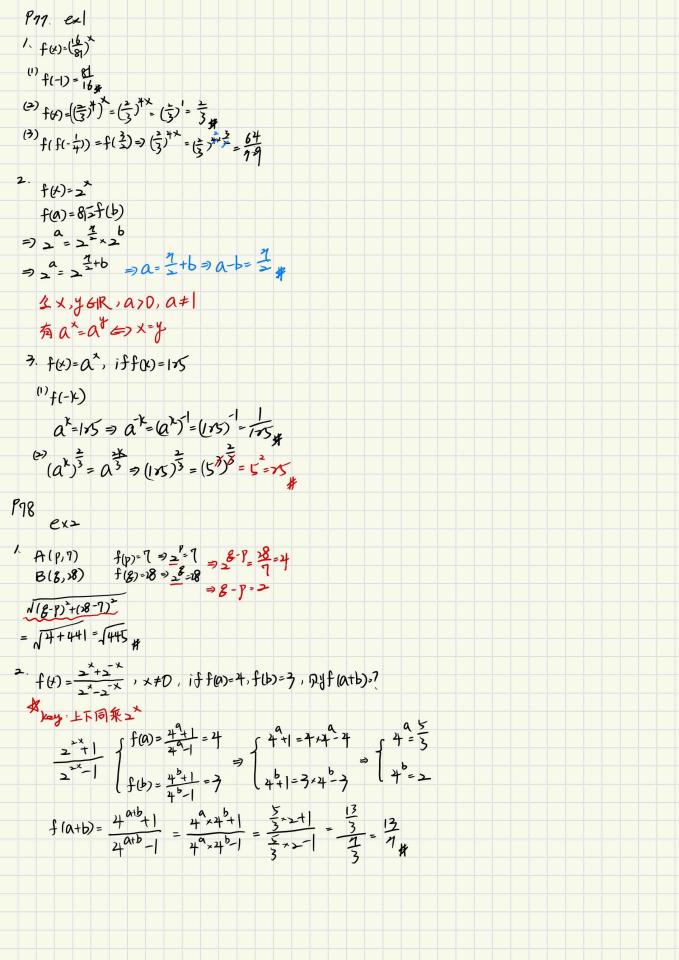 P77. ex1
1. f(x)=(16/81)^x
(1) f(-1)=81/16 #
(2) f(x)=((2/3)^4)^x=(2/3)^4x=(2/3)^1=2/3 #
(3) f(f(-1/4))=f(3/2)⇒(2/3)^4x=(2/3)^4×3/2=64/729
2. f(x)=2^x
f(a)=8√2f(b)
⇒2^a=2^7/2×2^b
⇒2^a=2^7/2+b ⇒a=7/2+b⇒a-b=7/2 #
全x,y∈R,a>0,a≠1
有a^x=a^y⇔x=y
3. f(x)=a^x, if f(k)=125
(1) f(-k)
a^k=125⇒a^-k=(a^k)^-1=(125)^-1=1/125 #
(2) (a^k)^2/3=a^2k/3⇒(125)^2/3=(5^3)^2/3=5^2=25 #
P78
ex2
1. A(p,7) f(p)=7⇒2^p=7 ⇒2^q-p=28/7=4
B(q,28) f(q)=28⇒2^q=28 ⇒q-p=2
√(q-p)^2+(28-7)^2
=√4+441=√445 #
2. f(x)=2^x+2^-x/2^x-2^-x, x≠0, if f(a)=4,f(b)=3,則f(a+b)=?
☆key:上下同乘2^x
2^2x+1/2^2x-1 { f(a)=4^a+1/4^a-1=4 ⇒ { 4^a+1=4×4^a-4 ⇒ { 4^a=5/3
f(b)=4^b+1/4^b-1=3 4^b+1=3×4^b-3 4^b=2
f(a+b)=4^a+b+1/4^a+b-1=4^a×4^b+1/4^a×4^b-1=5/3×2+1/5/3×2-1=13/3/7/3=13/7 #